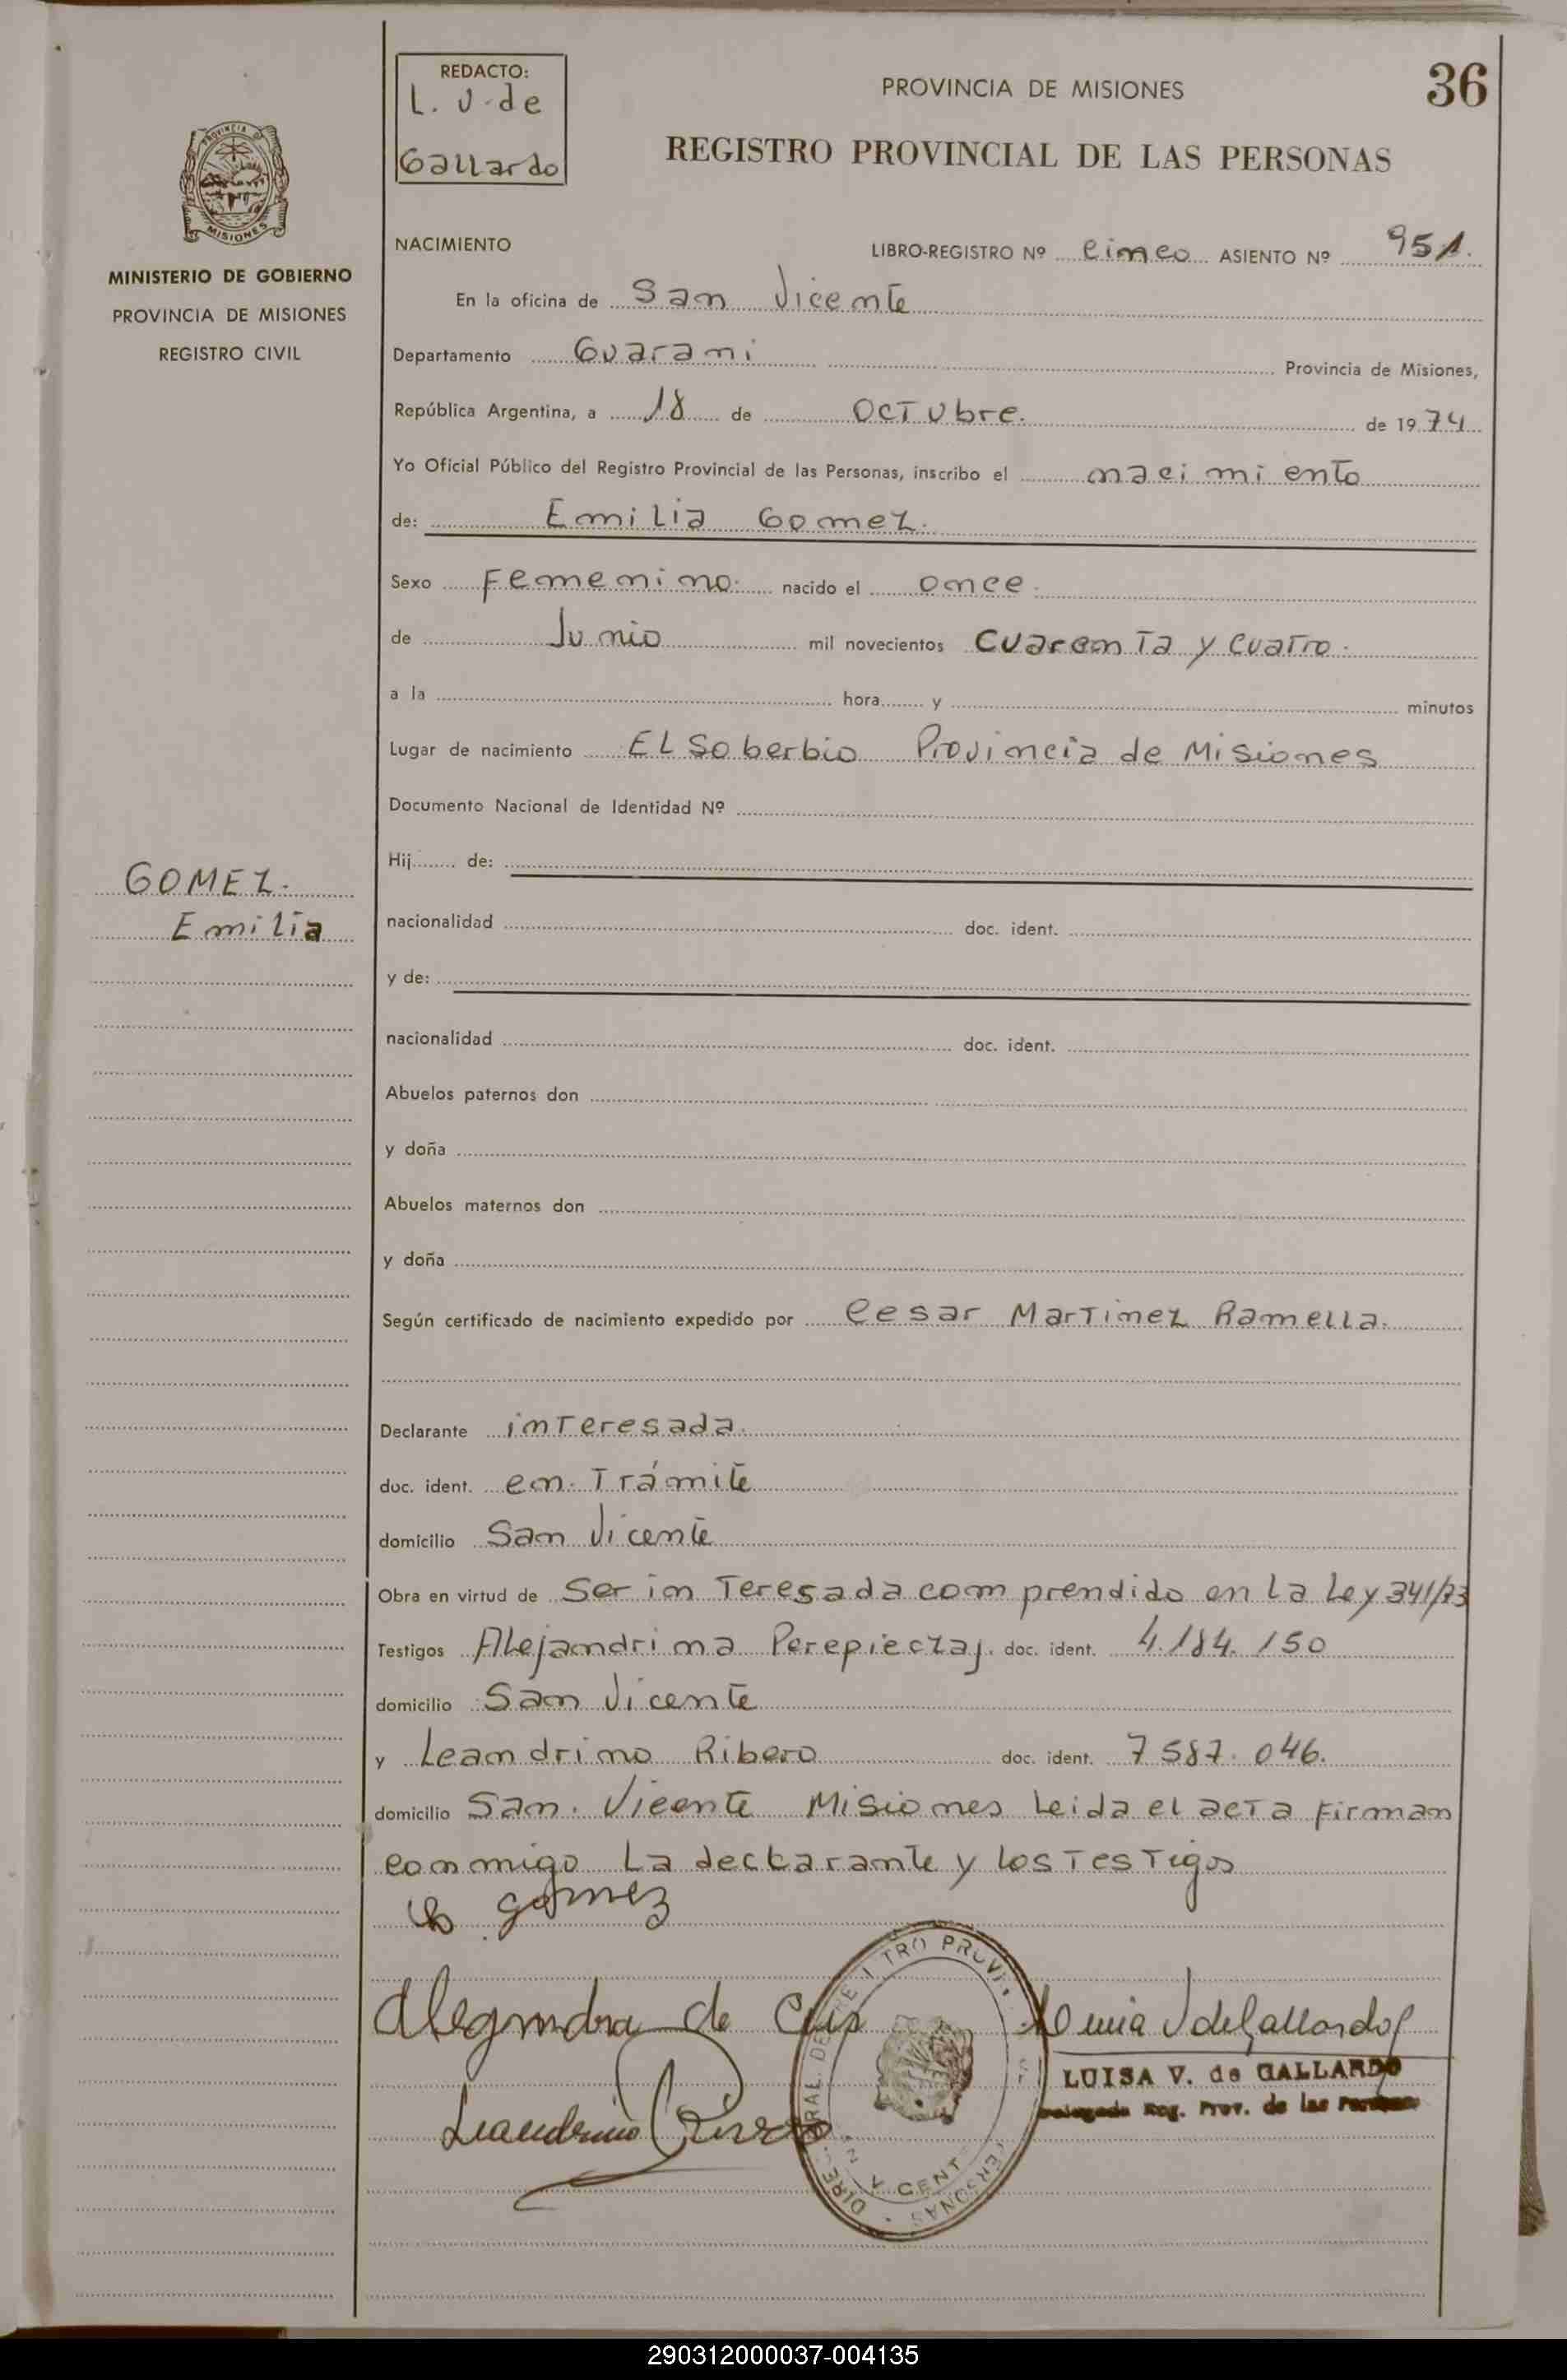 REDACTO:
L. V. de
Gallardo
PROVINCIA DE MISIONES
36
REGISTRO PROVINCIAL DE LAS PERSONAS
PROVINCIA DE
MISIONES
MINISTERIO DE GOBIERNO
PROVINCIA DE MISIONES
REGISTRO CIVIL
NACIMIENTO
LIBRO-REGISTRO Nº cinco ASIENTO Nº 951.
En la oficina de San Vicente
Departamento Guarani Provincia de Misiones,
República Argentina, a 18 de octubre. de 1974
Yo Oficial Público del Registro Provincial de las Personas, inscribo el nacimiento
de: Emilia Gomez.
Sexo Femenino. nacido el once.
de Junio mil novecientos cuarenta y cuatro.
a la hora y minutos
Lugar de nacimiento El Soberbio Provincia de Misiones
Documento Nacional de Identidad Nº
Hij de:
GOMEZ.
Emilia
nacionalidad doc. ident.
y de:
nacionalidad doc. ident.
Abuelos paternos don
y doña
Abuelos maternos don
y doña
Según certificado de nacimiento expedido por Cesar Martinez Ramella.
Declarante interesada.
doc. ident. en Trámite
domicilio San Vicente
Obra en virtud de Ser interesada comprendido en la Ley 341/73
Testigos Alejandrina Perepieczaj. doc. ident. 4.184.150
domicilio San Vicente
y Leandrino Ribero doc. ident. 7587.046.
domicilio San. Vicente Misiones leida el acta firman
conmigo La declarante y los testigos
gomez
de
Leandrino
LUISA V. de GALLARDO
Delegada Reg. Prov. de las Personas
290312000037-004135